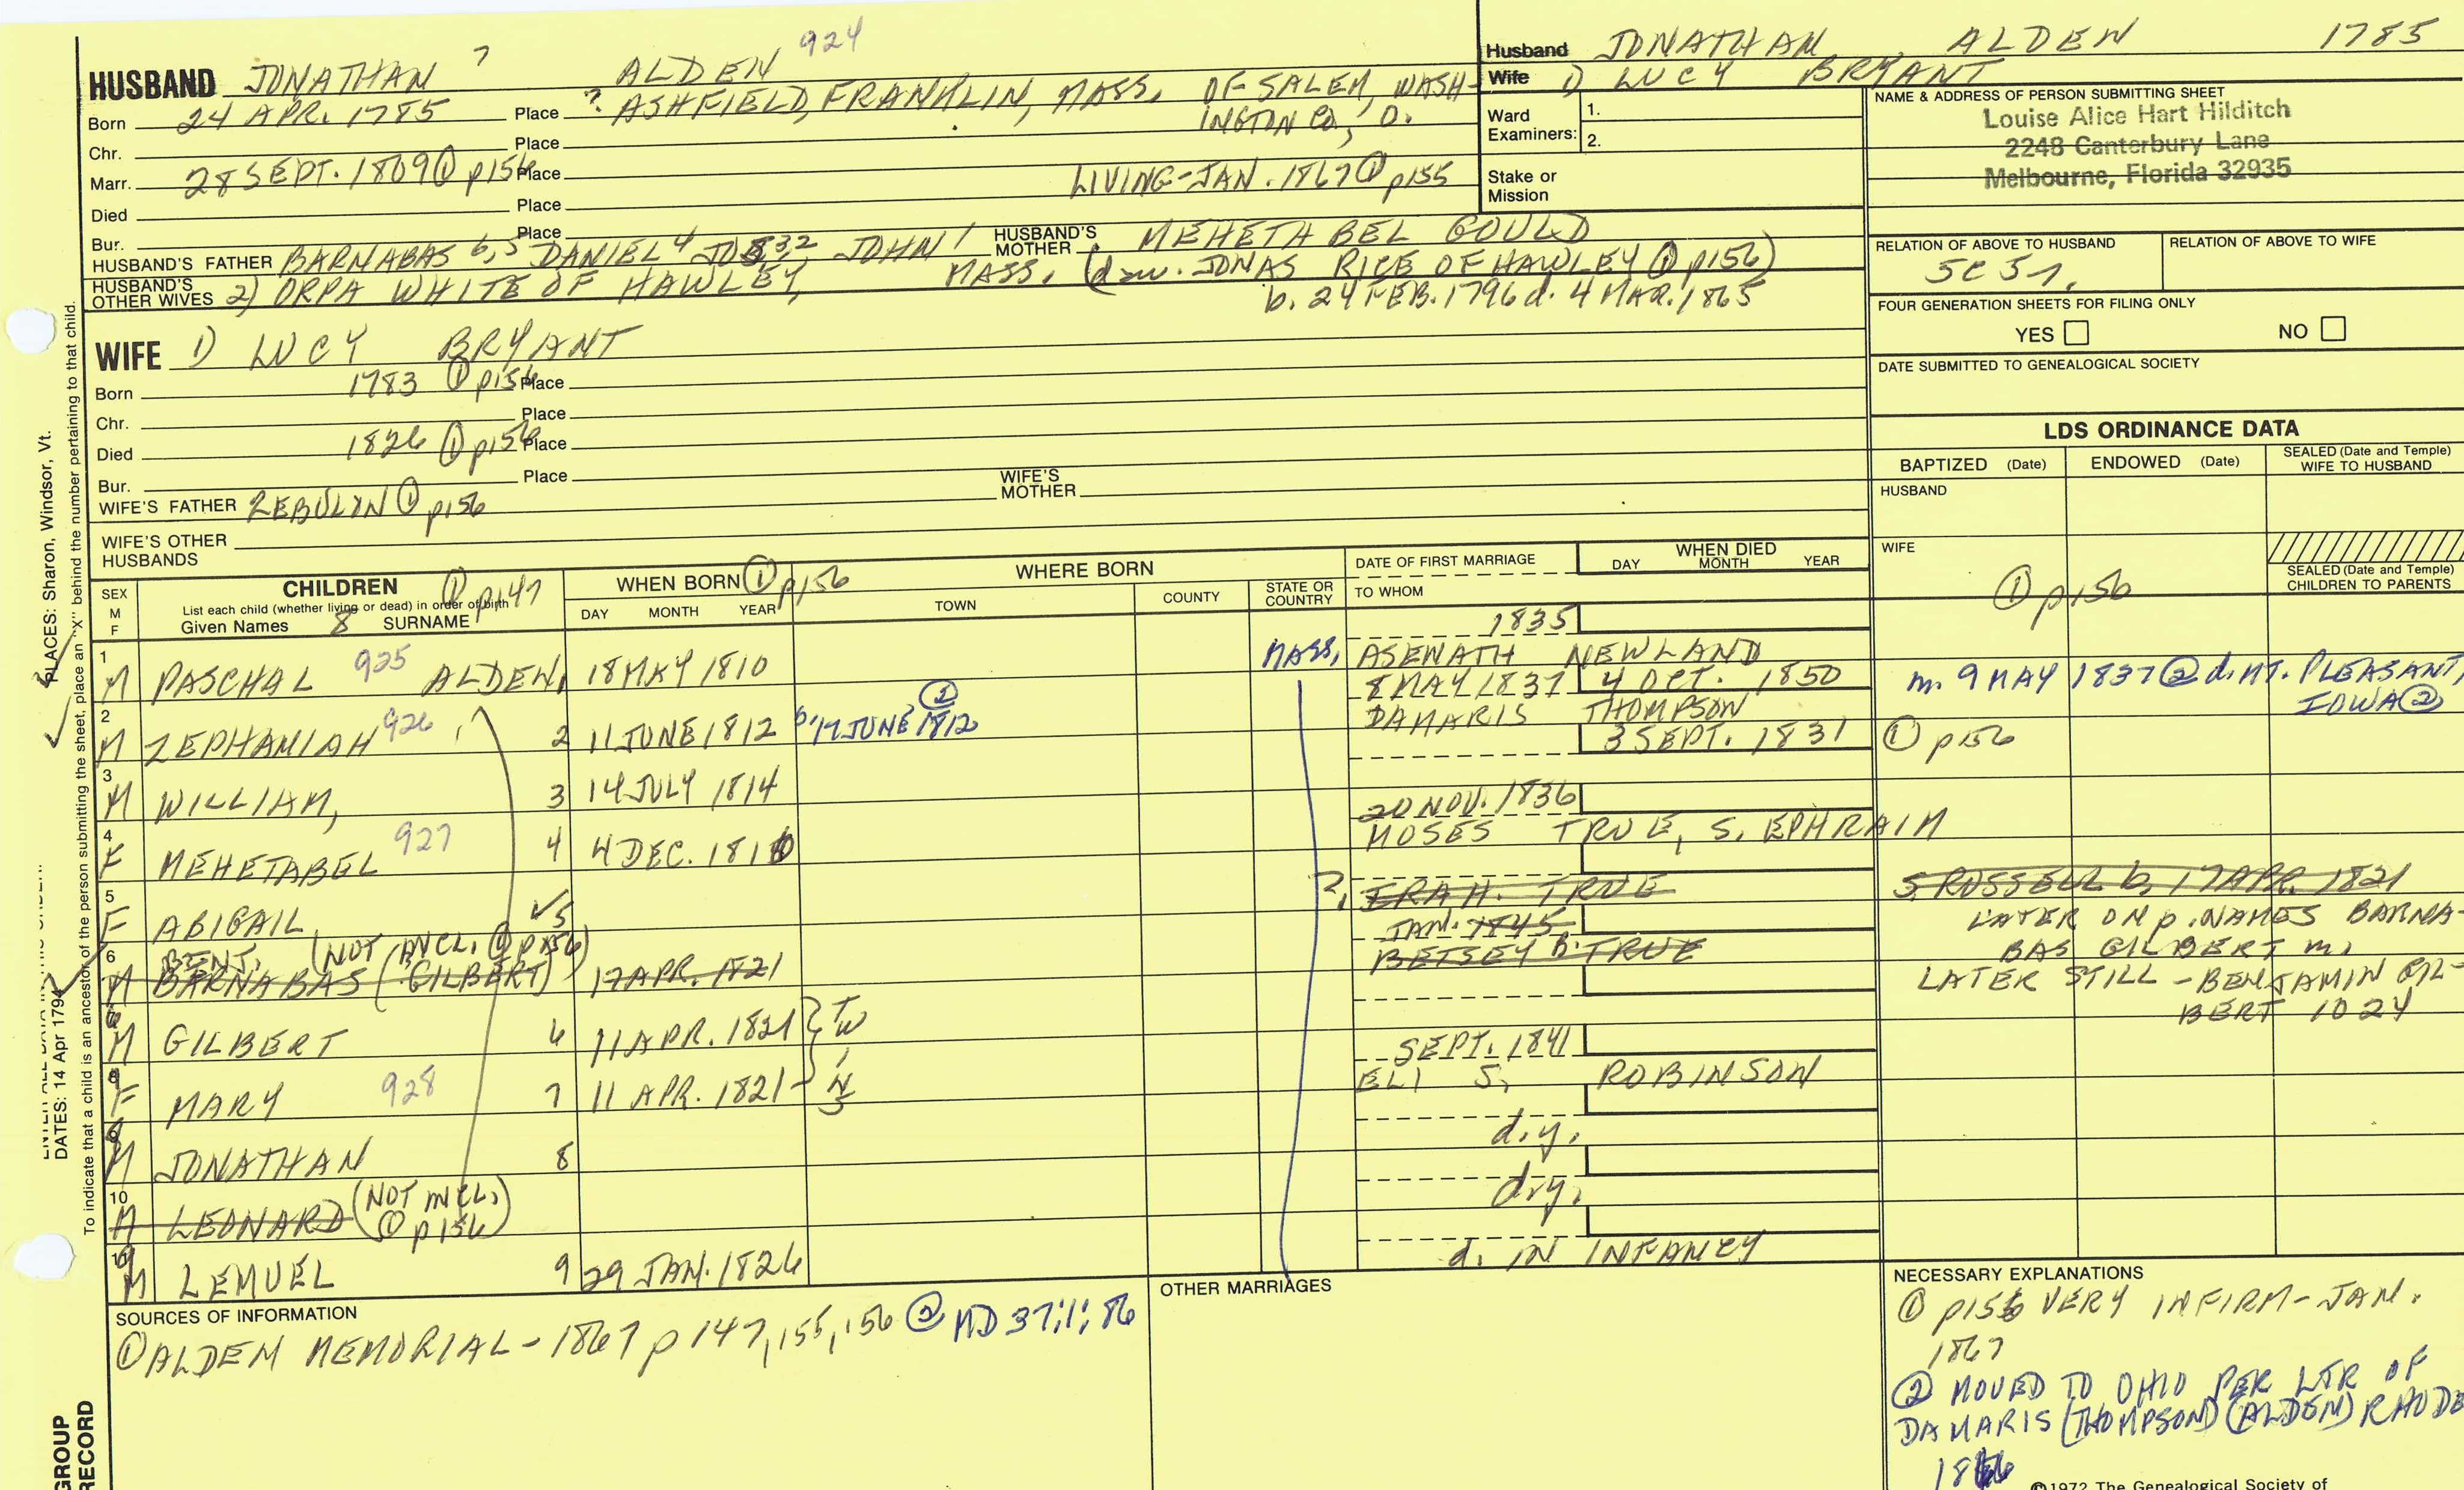 HUSBAND JONATHAN 7 ALDEN 924
Born 24 APR. 1785 Place ? ASHFIELD, FRANKLIN, MASS. OF SALEM, WASH-
INGTON CO., O.
Chr. Place
Marr. 28 SEPT. 1809 ① p156 Place LIVING-JAN. 1867 ① p155
Died Place
Bur. Place
HUSBAND'S FATHER BARNABAS 6,5 DANIEL 4 JOS 3,2 JOHN 1 HUSBAND'S MOTHER MEHETABEL GOULD
HUSBAND'S OTHER WIVES 2) ORPA WHITE OF HAWLEY, MASS. (d w. JONAS RICE OF HAWLEY ① p156)
b. 24 FEB. 1796 d. 4 MAR. 1865
WIFE 1) LUCY BRYANT
Born 1783 ① p156 Place
Chr. Place
Died 1826 ① p156 Place
Bur. Place
WIFE'S FATHER ZEBULON ① p156 WIFE'S MOTHER
WIFE'S OTHER HUSBANDS
Husband JONATHAN ALDEN 1785
Wife 1) LUCY BRYANT
Ward Examiners: 1.
2.
Stake or Mission
NAME & ADDRESS OF PERSON SUBMITTING SHEET
Louise Alice Hart Hilditch
2248 Canterbury Lane
Melbourne, Florida 32935
RELATION OF ABOVE TO HUSBAND RELATION OF ABOVE TO WIFE
FOUR GENERATION SHEETS FOR FILING ONLY
YES NO
DATE SUBMITTED TO GENEALOGICAL SOCIETY
LDS ORDINANCE DATA
BAPTIZED (Date) ENDOWED (Date) SEALED (Date and Temple) WIFE TO HUSBAND
HUSBAND
WIFE
SEALED (Date and Temple) CHILDREN TO PARENTS
① p156
SEX M F
CHILDREN ① p147
List each child (whether living or dead) in order of birth
Given Names 8 SURNAME
WHEN BORN ① p156
DAY MONTH YEAR
WHERE BORN
TOWN COUNTY STATE OR COUNTRY
DATE OF FIRST MARRIAGE
TO WHOM
WHEN DIED
DAY MONTH YEAR
1835
1 M PASCHAL 925 ALDEN, 18 MAY 1810 MASS. ASENATH NEWLAND
8 MAY 1837 4 OCT. 1850 m. 9 MAY 1837 ② d. MT. PLEASANT, IOWA ②
2 M ZEPHANIAH 926 2 11 JUNE 1812 b. 17 JUNE 1812 ② DAMARIS THOMPSON
3 SEPT. 1831 ① p156
3 M WILLIAM, 3 14 JULY 1814
20 NOV. 1836
4 F MEHETABEL 927 4 4 DEC. 1816 MOSES TRUE, S. EPHRAIM
5 F ABIGAIL 5 ? IRA H. TRUE S. RUSSELL b. 17 APR. 1821
JAN. 1845
LATER ON p. NAMES BARNA-
BAS GILBERT m.
LATER STILL - BENJAMIN GIL-
BERT 1024
6 M BENJ. BARNABAS (GILBERT) (NOT INCL. ① p156) 17 APR. 1821 BETSEY B. TRUE
M GILBERT 6 11 APR. 1821 } TWINS
SEPT. 1841
F MARY 928 7 11 APR. 1821 ELI S. ROBINSON
d.y.
M JONATHAN 8
d.y.
10 M LEONARD (NOT INCL. ① p156)
d. IN INFANCY
M LEMUEL 9 29 JAN. 1826
SOURCES OF INFORMATION
① ALDEN MEMORIAL - 1867 p 147, 155, 156 ② MD 37;1; 86
OTHER MARRIAGES
NECESSARY EXPLANATIONS
① p156 VERY INFIRM - JAN.
1867
② MOVED TO OHIO PER LTR OF
DAMARIS (THOMPSON) (ALDEN) RHODE
©1972 The Genealogical Society of
PLACES: Sharon, Windsor, Vt.
DATES: 14 Apr 1794
To indicate that a child is an ancestor of the person submitting the sheet, place an "X" behind the number pertaining to that child.
GROUP RECORD